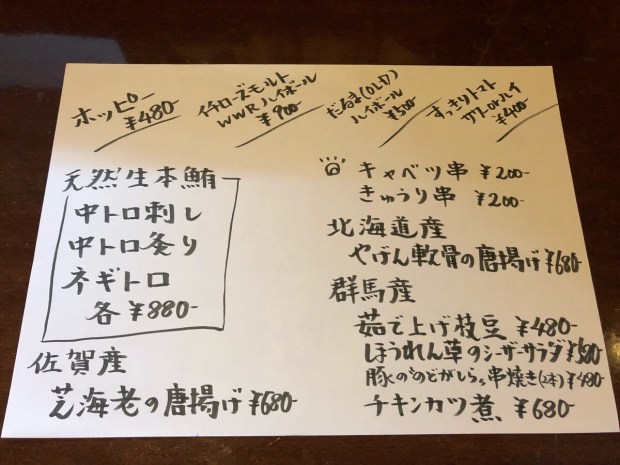 ホッピー
¥480-
イチローズモルト
WWRハイボール
¥900-
だるま(OLD)
ハイボール
¥500-
すっきりトマト
サワーorハイ
¥400-
天然生本鮪
中トロ刺し
中トロ炙り
ネギトロ
各 ¥880-
佐賀産
芝海老の唐揚げ ¥680-
キャベツ串 ¥200-
きゅうり串 ¥200-
北海道産
やげん軟骨の唐揚げ ¥680-
群馬産
茹で上げ枝豆 ¥480-
ほうれん草のシーザーサラダ ¥580
豚の"のどがしら"串焼き(2本) ¥480
チキンカツ煮 ¥680-